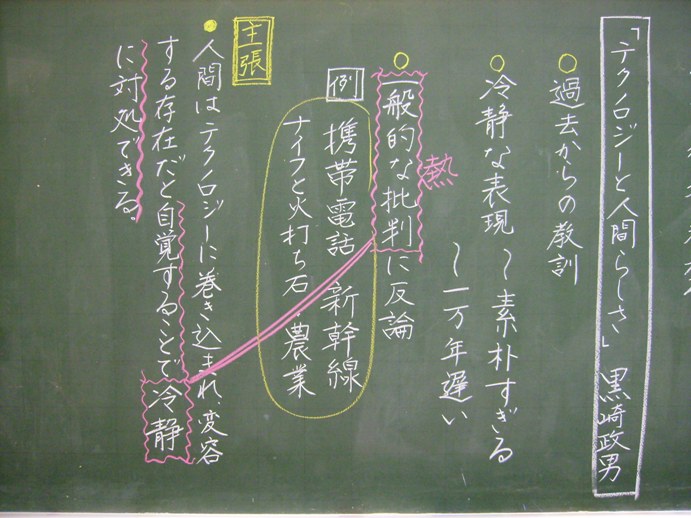 「テクノロジーと人間らしさ」 黒崎政男
過去からの教訓
冷静な表現 〜 素朴すぎる
〜 一万年遅い
一般的な批判に反論
熱
例
携帯電話 新幹線
ナイフと火打ち石・農業
主張
人間はテクノロジーに巻き込まれ、変容
する存在だと自覚することで冷静
に対処できる。